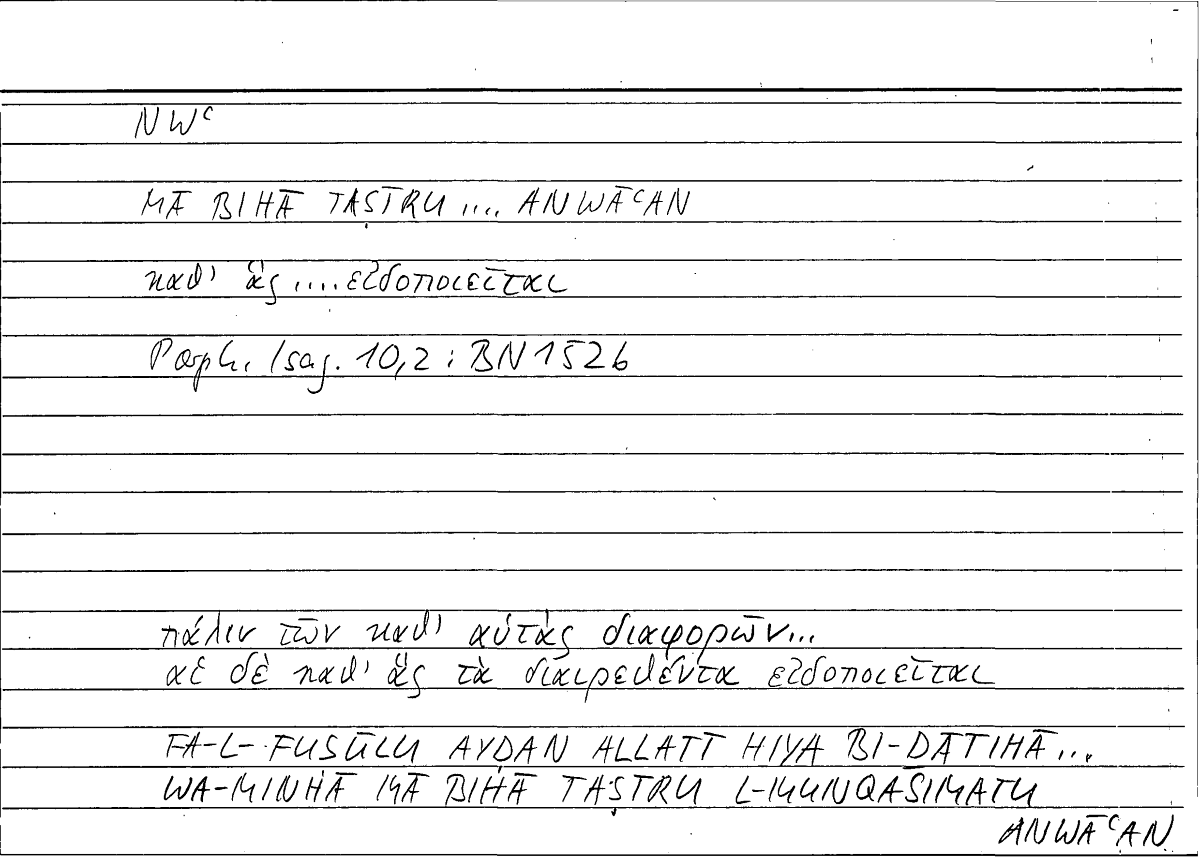 NWʿ
MĀ BIHĀ TAṢĪRU .... ANWĀʿAN
καθ' ἃς .... εἰδοποιεῖται
Porph. Isag. 10,2 : BN 152b
πάλιν τῶν καθ' αὑτὰς διαφορῶν...
αἱ δὲ καθ' ἃς τὰ διαιρεθέντα εἰδοποιεῖται
FA-L-FUṢŪLU AYḌAN ALLATĪ HIYA BI-ḎĀTIHĀ...
WA-MINHĀ MĀ BIHĀ TAṢĪRU L-MUNQASIMATU
ANWĀʿAN